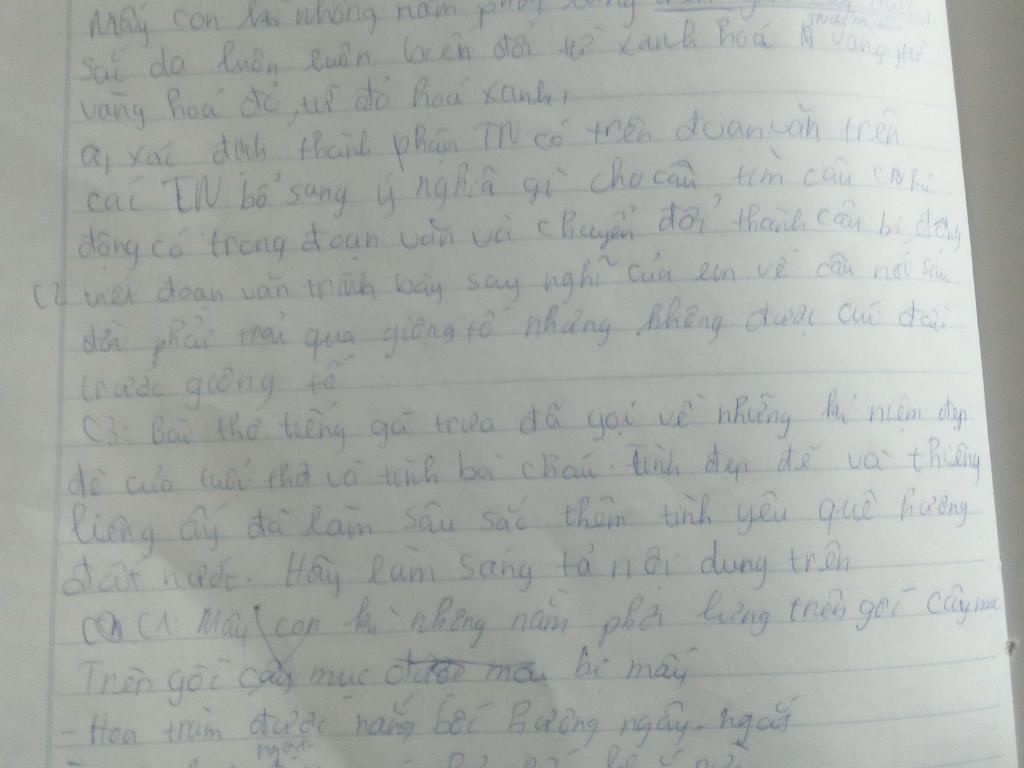 Mấy con kì nhông nằm phơi lưng
sắc da luôn luôn biến đổi từ xanh hoá vàng từ
vàng hoá đỏ, từ đỏ hoá xanh,
a, xác định thành phần TN có trên đoạn văn trên
các TN bổ sung ý nghĩa gì cho câu tìm câu chủ
động có trong đoạn văn và chuyển đổi thành câu bị động
C2 viết đoạn văn trình bày say nghĩ của em về câu nói sau
đời phải trải qua giông tố nhưng không được cúi đầu
trước giông tố
C3: Bài thơ tiếng gà trưa đã gọi về những kỉ niệm đẹp
đẽ của tuổi thơ và tình bà cháu. Tình đẹp đẽ và thiêng
liêng ấy đã làm sâu sắc thêm tình yêu quê hương
đất nước. Hãy làm sáng tả nội dung trên
C1: Mấy con kì nhông nằm phơi lưng trên gốc cây mục
Trên gốc cây mục bị mấy
- Hoa tràm được nắng bốc hương ngây ngất
ngất